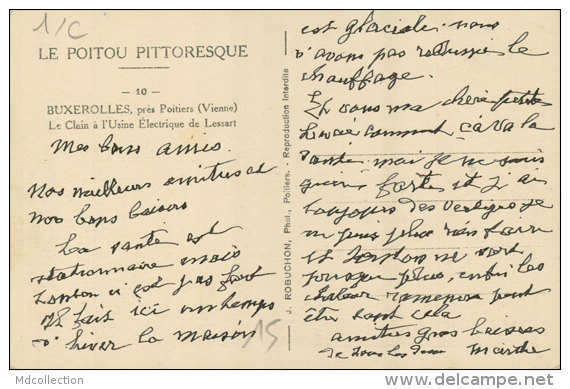 1/C
LE POITOU PITTORESQUE
— 10 —
BUXEROLLES, près Poitiers (Vienne)
Le Clain à l'Usine Électrique de Lessart
Mes bons amis
Nos meilleurs amitiés et
nos bons baisers
La santé est
stationnaire mais
n'est pas fort
il fait ici un temps
d'hiver la maison
15
J. ROBUCHON, Phot., Poitiers. - Reproduction Interdite
est glaciale nous
n'avons pas rallumé le
chauffage.
Et vous ma chère petite
comment ça va la
santé moi je ne suis
guère forte et j'ai
toujours des vertiges je
ne puis plus rien faire
et ne sort
presque plus, enfin les
chaleur peut
être cela
amitiés gros baisers
de tous les deux Marthe
Mdcollection
http://www.delcampe.net